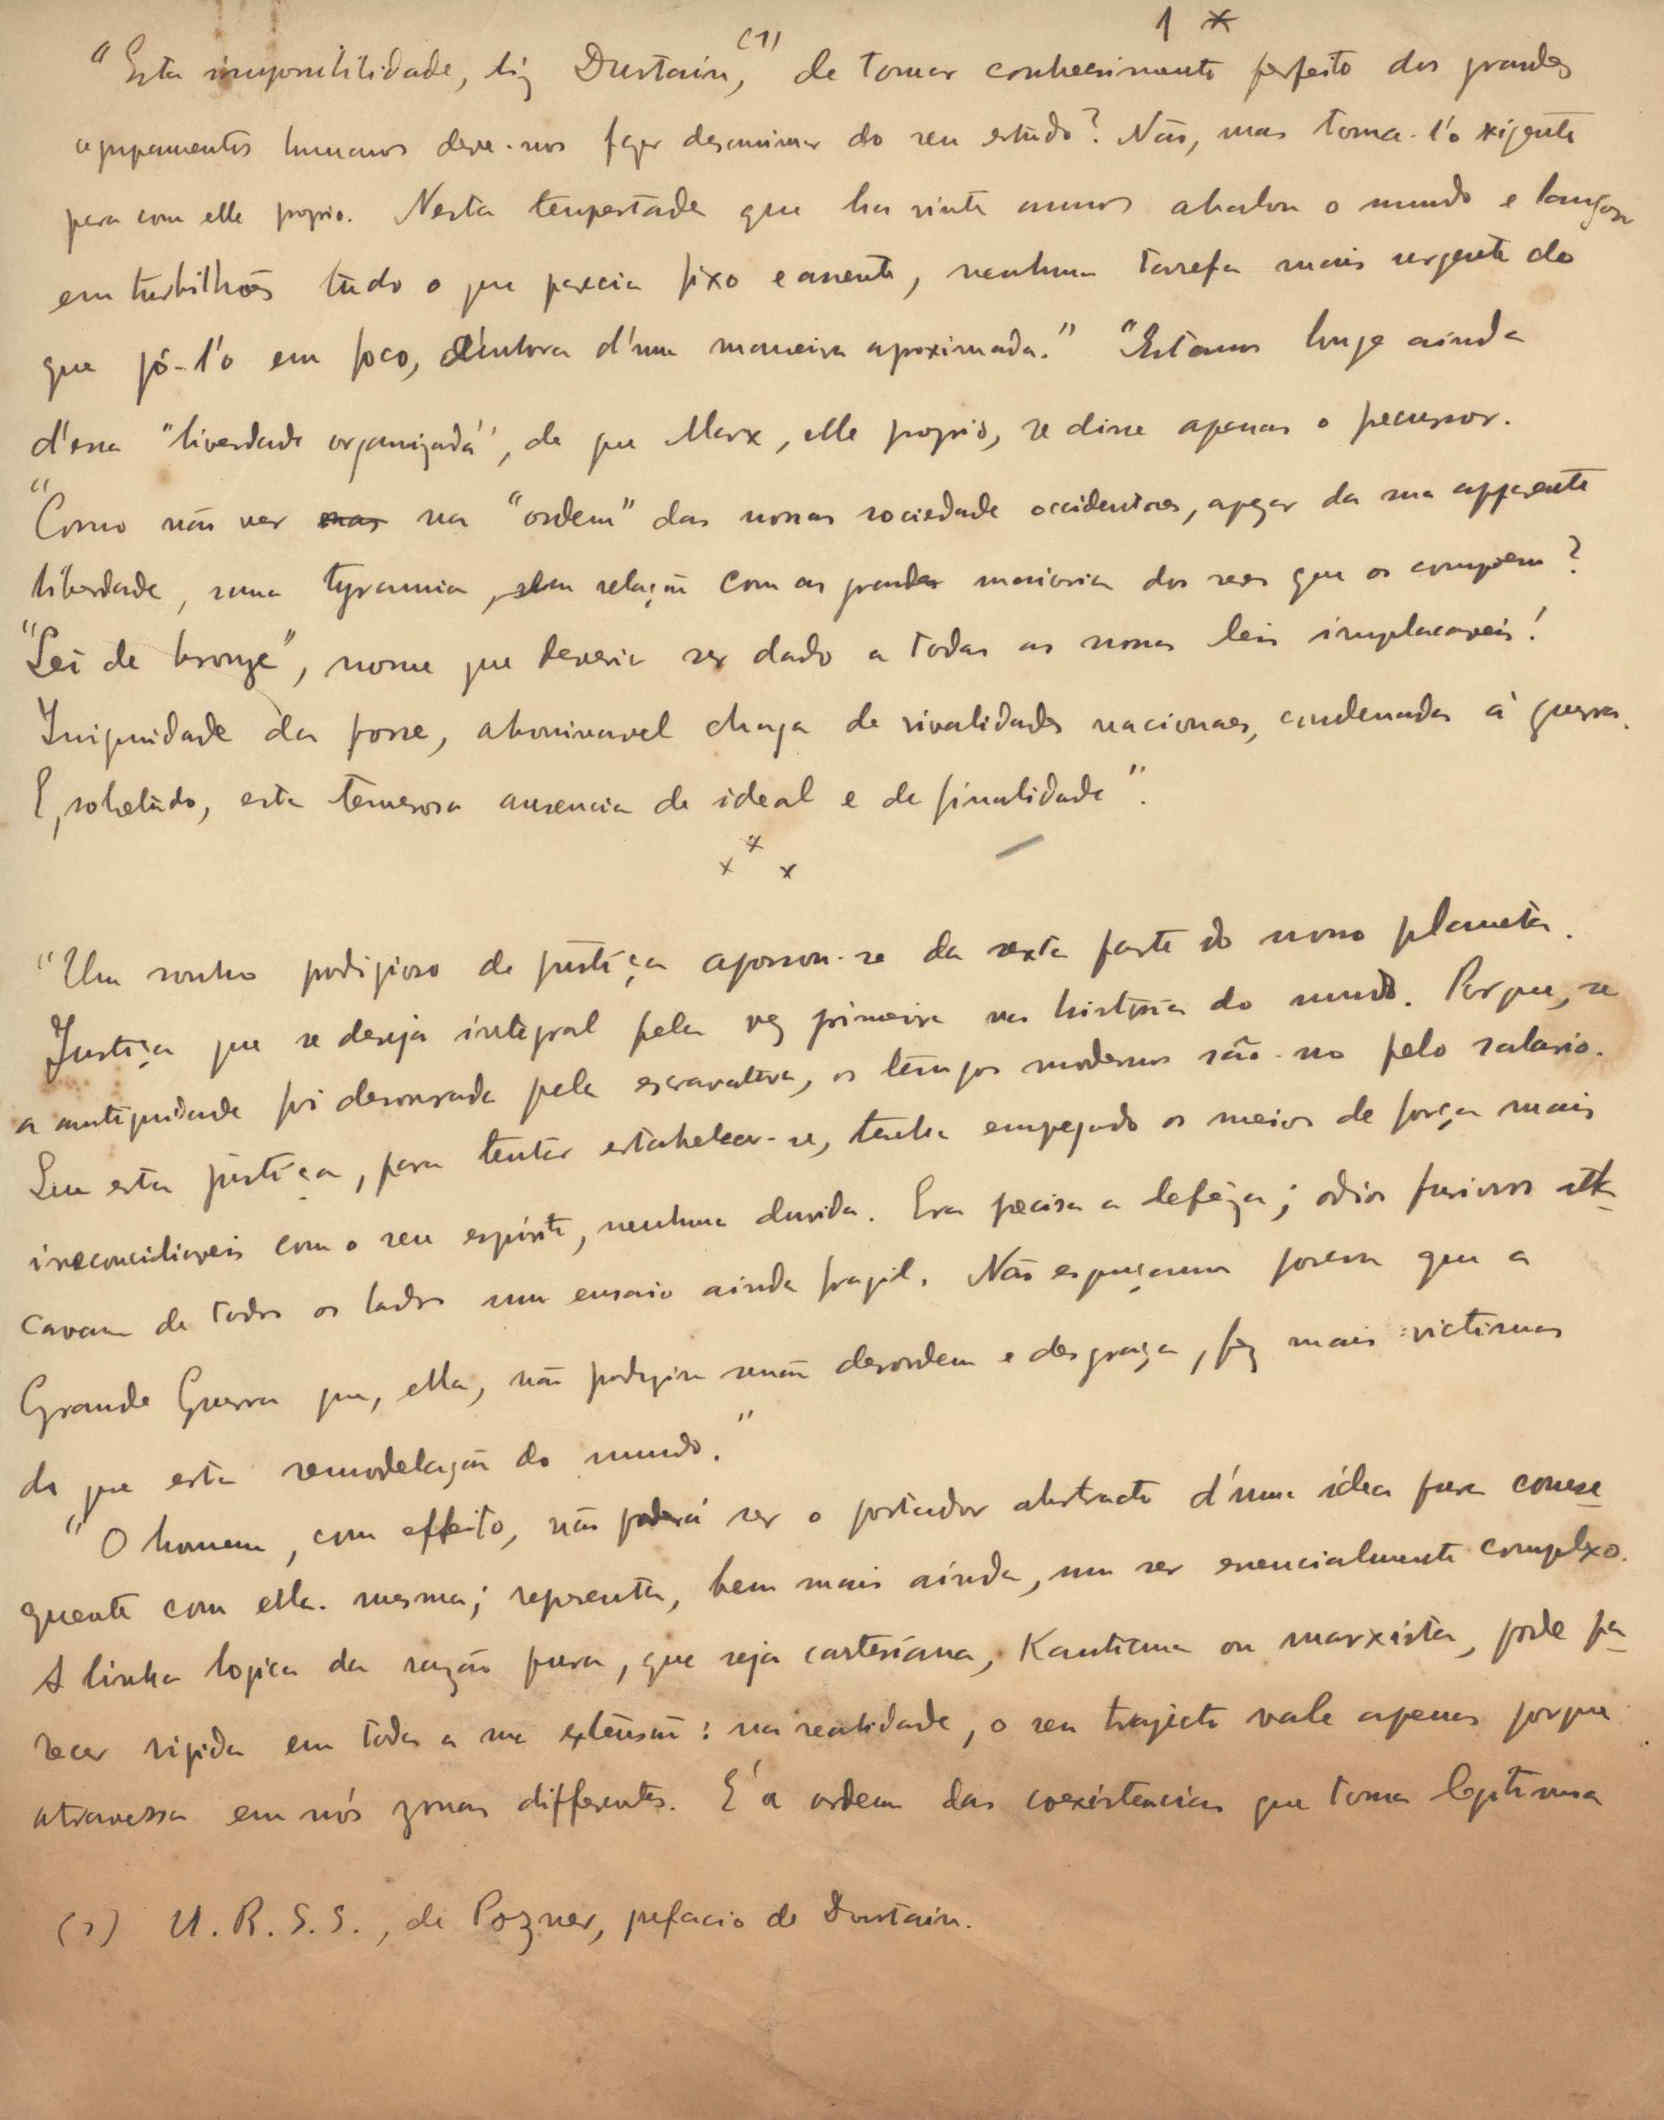 1 *
"Esta impossibilidade, diz Durtain, (1) de tomar conhecimento perfeito dos grandes
agrupamentos humanos deve-nos fazer desanimar do seu estudo? Não, mas torna-l'o exigente
para com elle proprio. Nesta tempestade que ha vinte annos abalou o mundo e lançou
em turbilhões tudo o que parecia fixo e assente, nenhuma tarefa mais urgente do
que pô-l'o em foco, embora d'uma maneira aproximada." "Estamos longe ainda
d'essa "liverdade organizada", de que Marx, elle proprio, se disse apenas o precursor.
"Como não ver na "ordem" das nossas sociedade occidentaes, apezar da sua apparente
liberdade, uma tyrannia, sem relação com as grandes maioria dos seres que os compõem?
"Lei de bronze", nome que deveria ser dado a todas as nossas leis implacaveis!
Iniquidade da posse, abominavel chaga de rivalidades nacionaes, condenadas á guerra.
E, sobretudo, esta temerosa ausencia de ideal e de finalidade".
x x x
"Um sonho prodigioso de justiça apossou-se da sexta parte do nosso planeta.
Justiça que se deseja integral pela vez primeira na história do mundo. Porque, se
a antiguidade foi desonrada pela escravatura, os tempos modernos são-no pelo salario.
Que esta justiça, para tentar estabelecer-se, tenha empregado os meios de força mais
irreconciliaveis com o seu espirito, nenhuma duvida. Era precisa a defêza; odios furiosos ata-
cavam de todos os lados um ensaio ainda fragil. Não esqueçamos porem que a
Grande Guerra que, ella, não produziu senão desordem e desgraça, fez mais victimas
do que esta remodelação do mundo."
"O homem, com effeito, não poderá ser o portador abstracto d'uma idea pura conse-
quente com ella-mesma; representa, bem mais ainda, um ser essencialmente complexo.
A linha logica da razão pura, que seja cartesiana, Kantiana ou marxista, pode pa-
recer rigida em toda a sua extensão: na realidade, o seu trajecto vale apenas porque
atravessa em nós zonas differentes. E' a ordem das coexistencias que torna legitima
(1) U.R.S.S., de Pozner, prefacio de Durtain.